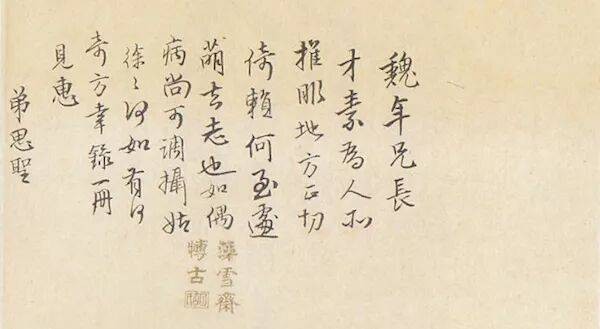 魏年兄長
才素為人所
推服地方正切
倚賴何至遽
萌去志也如偶
病尚可調攝姑
徐〻何如有何
奇方幸錄一冊
見惠
弟思聖
雪齋
博古